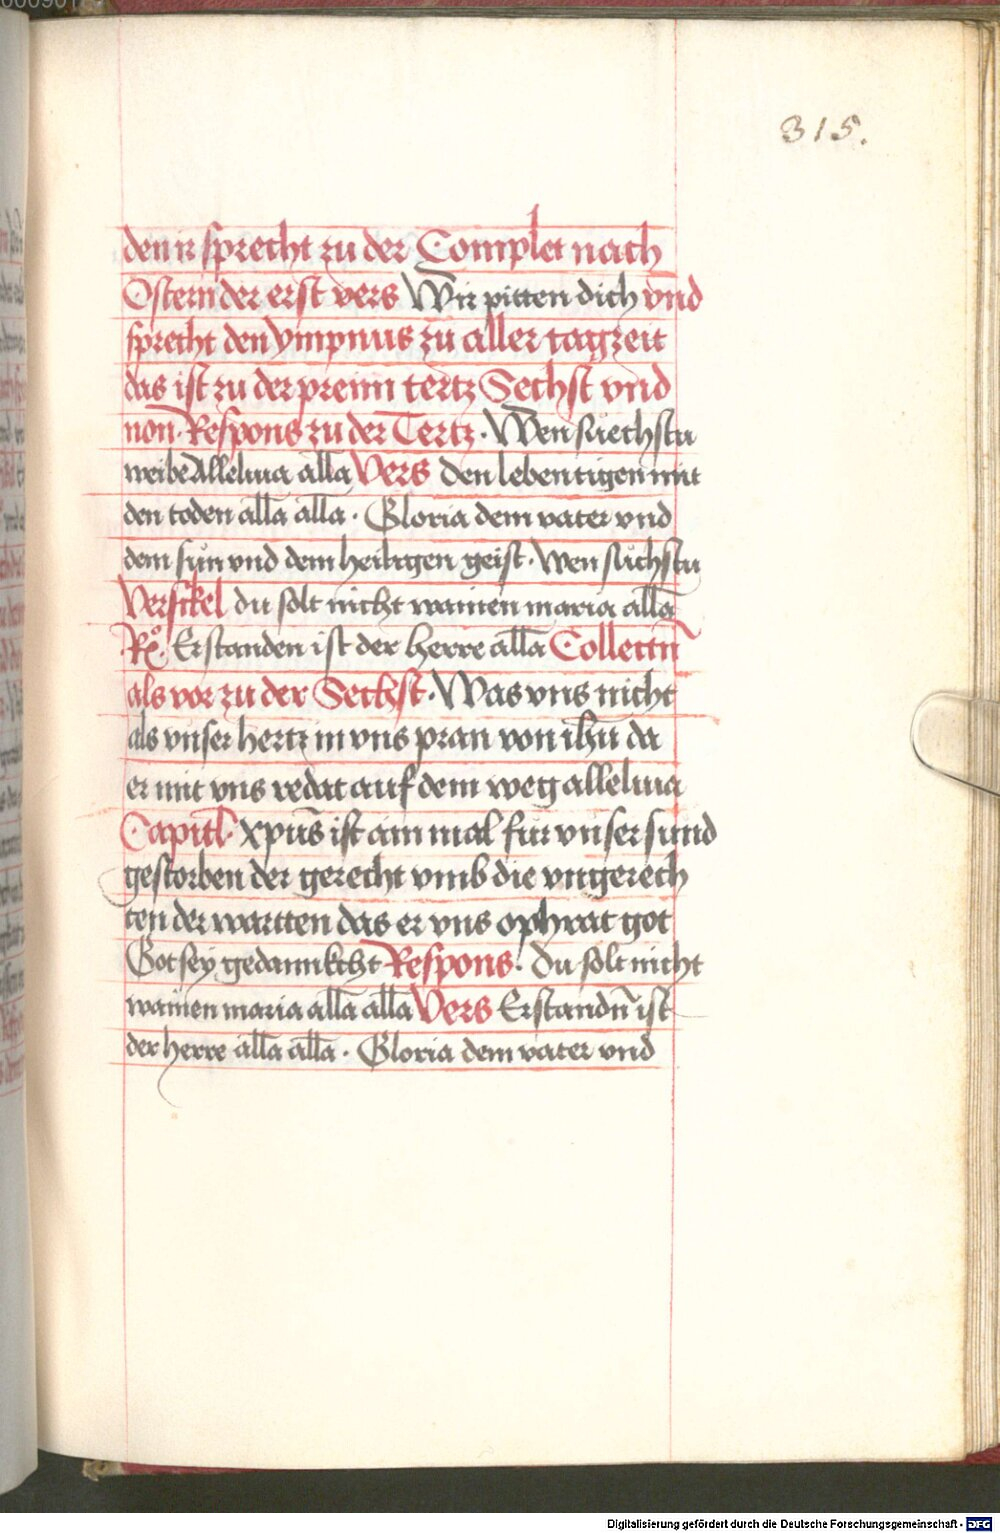 315.
den ir sprecht zu der Complet nach
Ostern der erst vers Wir pitten dich vnd
sprecht den ympnus zu aller tagzeit
das ist zu der preim tertz Sechst vnd
non. Respons zu der Tertz. Wen suechstu
weibe Alleluia all̄a Vers den lebentigen mit
den toden all̄a all̄a. Gloria dem vater vnd
dem sun vnd dem heiligen geist. Wen suchstu
Versickel du solt nicht wainen maria all̄a
Rͦ. Erstanden ist der herre all̄a Collectn̄
als vor zu der Sechst. Was vns nicht
als vnser hertz in vns pran von ihū da
er mit vns redat auf dem weg alleluia
Capitl. xpūs ist ain mal fur vnser sund
gestorben der gerecht vmb die vngerech
ten der wartten das er vns ophrat got
Got sey gedannkcht Respons. Du solt nicht
wainen maria all̄a all̄a Vers Erstandn̄ ist
der herre all̄a all̄a. Gloria dem vater vnd
Digitalisierung gefördert durch die Deutsche Forschungsgemeinschaft - DFG